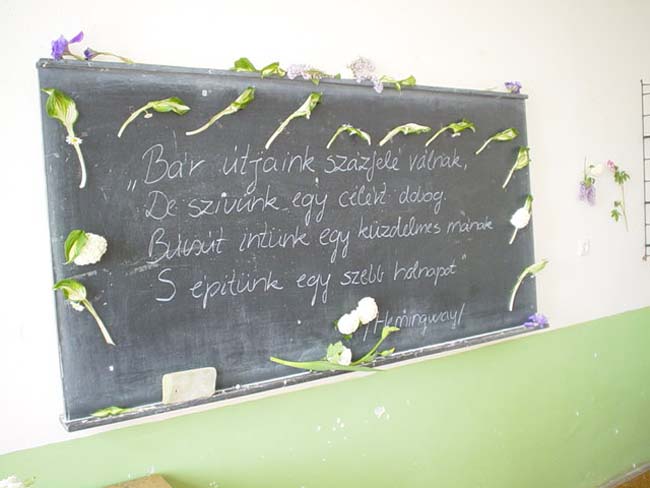 „Bár útjaink százfelé válnak,
De szívünk egy célért dobog.
Búcsút intünk egy küzdelmes mának
S építünk egy szebb holnapot"
/Hemingway/